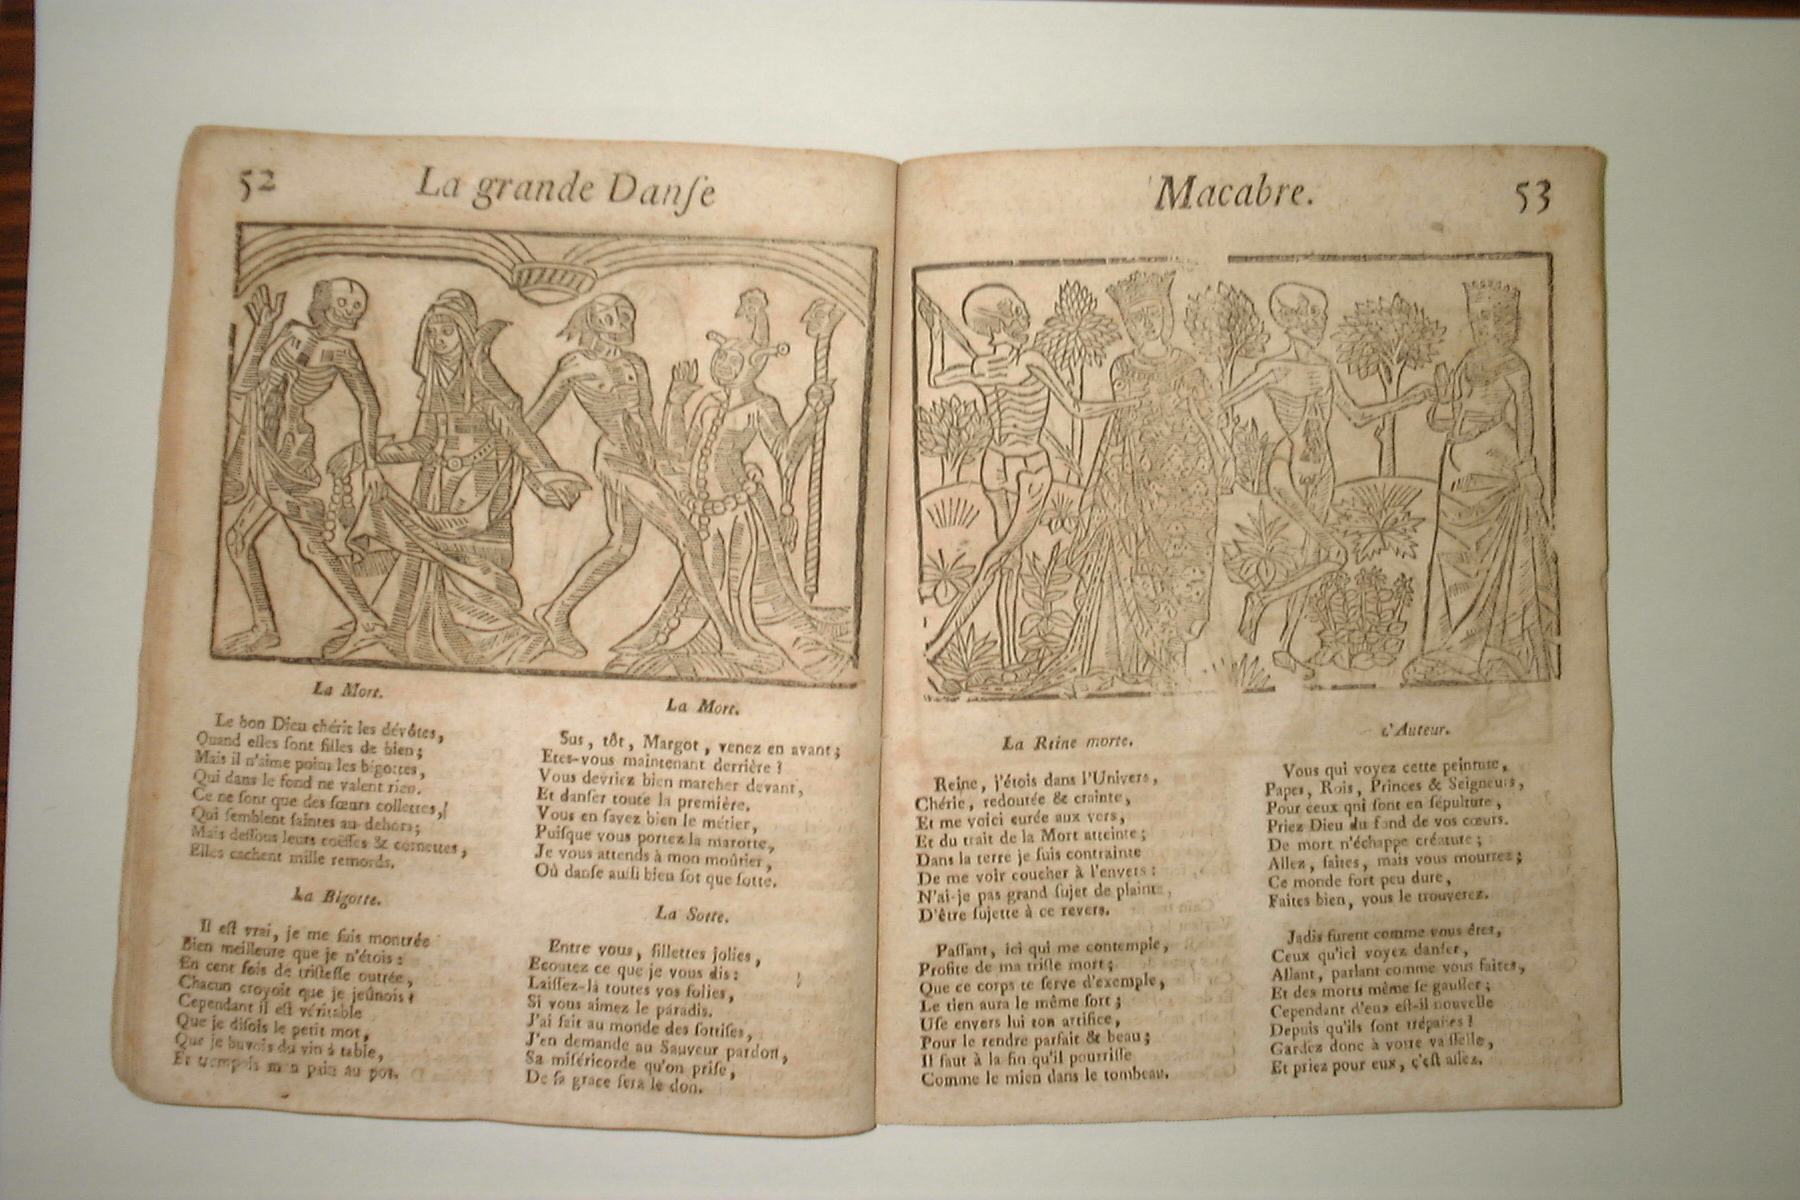 52
La grande Danſe
La Mort.
Le bon Dieu chérit les dévôtes,
Quand elles ſont filles de bien;
Mais il n'aime point les bigottes,
Qui dans le fond ne valent rien.
Ce ne ſont que des ſœurs collettes,
Qui ſemblent ſaintes au dehors;
Mais deſſous leurs coëffes & cornettes,
Elles cachent mille remords.
La Bigotte.
Il eſt vrai, je me ſuis montrée
Bien meilleure que je n'étois:
En cent fois de triſteſſe outrée,
Chacun croyoit que je jeûnois:
Cependant il eſt véritable
Que je diſois le petit mot,
Que je buvois du vin à table,
Et trempois mon pain au pot.
La Mort.
Sus, tôt, Margot, venez en avant;
Etes-vous maintenant derrière?
Vous devriez bien marcher devant,
Et danſer toute la première.
Vous en ſavez bien le métier,
Puiſque vous portez la marotte,
Je vous attends à mon moûtier,
Où danſe auſſi bien ſot que ſotte.
La Sotte.
Entre vous, fillettes jolies,
Ecoutez ce que je vous dis:
Laiſſez-là toutes vos folies,
Si vous aimez le paradis.
J'ai fait au monde des ſottiſes,
J'en demande au Sauveur pardon,
Sa miſéricorde qu'on priſe,
De ſa grace ſera le don.
Macabre.
53
La Reine morte.
Reine, j'étois dans l'Univers,
Chérie, redoutée & crainte,
Et me voici curée aux vers,
Et du trait de la Mort atteinte;
Dans la terre je ſuis contrainte
De me voir coucher à l'envers:
N'ai-je pas grand ſujet de plainte,
D'être ſujette à ce revers.
Paſſant, ici qui me contemple,
Profite de ma triſte mort;
Que ce corps te ſerve d'exemple,
Le tien aura le même ſort;
Uſe envers lui ton artifice,
Pour le rendre parfait & beau;
Il faut à la fin qu'il pourriſſe
Comme le mien dans le tombeau.
L'Auteur.
Vous qui voyez cette peinture,
Papes, Rois, Princes & Seigneurs,
Pour ceux qui ſont en ſépulture,
Priez Dieu du fond de vos cœurs.
De mort n'échappe créature;
Allez, faites, mais vous mourrez;
Ce monde fort peu dure,
Faites bien, vous le trouverez.
Jadis furent comme vous êtes,
Ceux qu'ici voyez danſer,
Allant, parlant comme vous faites,
Et des morts même ſe gauſſer;
Cependant d'eux eſt-il nouvelle
Depuis qu'ils ſont trépaſſés?
Gardez donc à votre
Et priez pour eux, c'eſt aſſez.